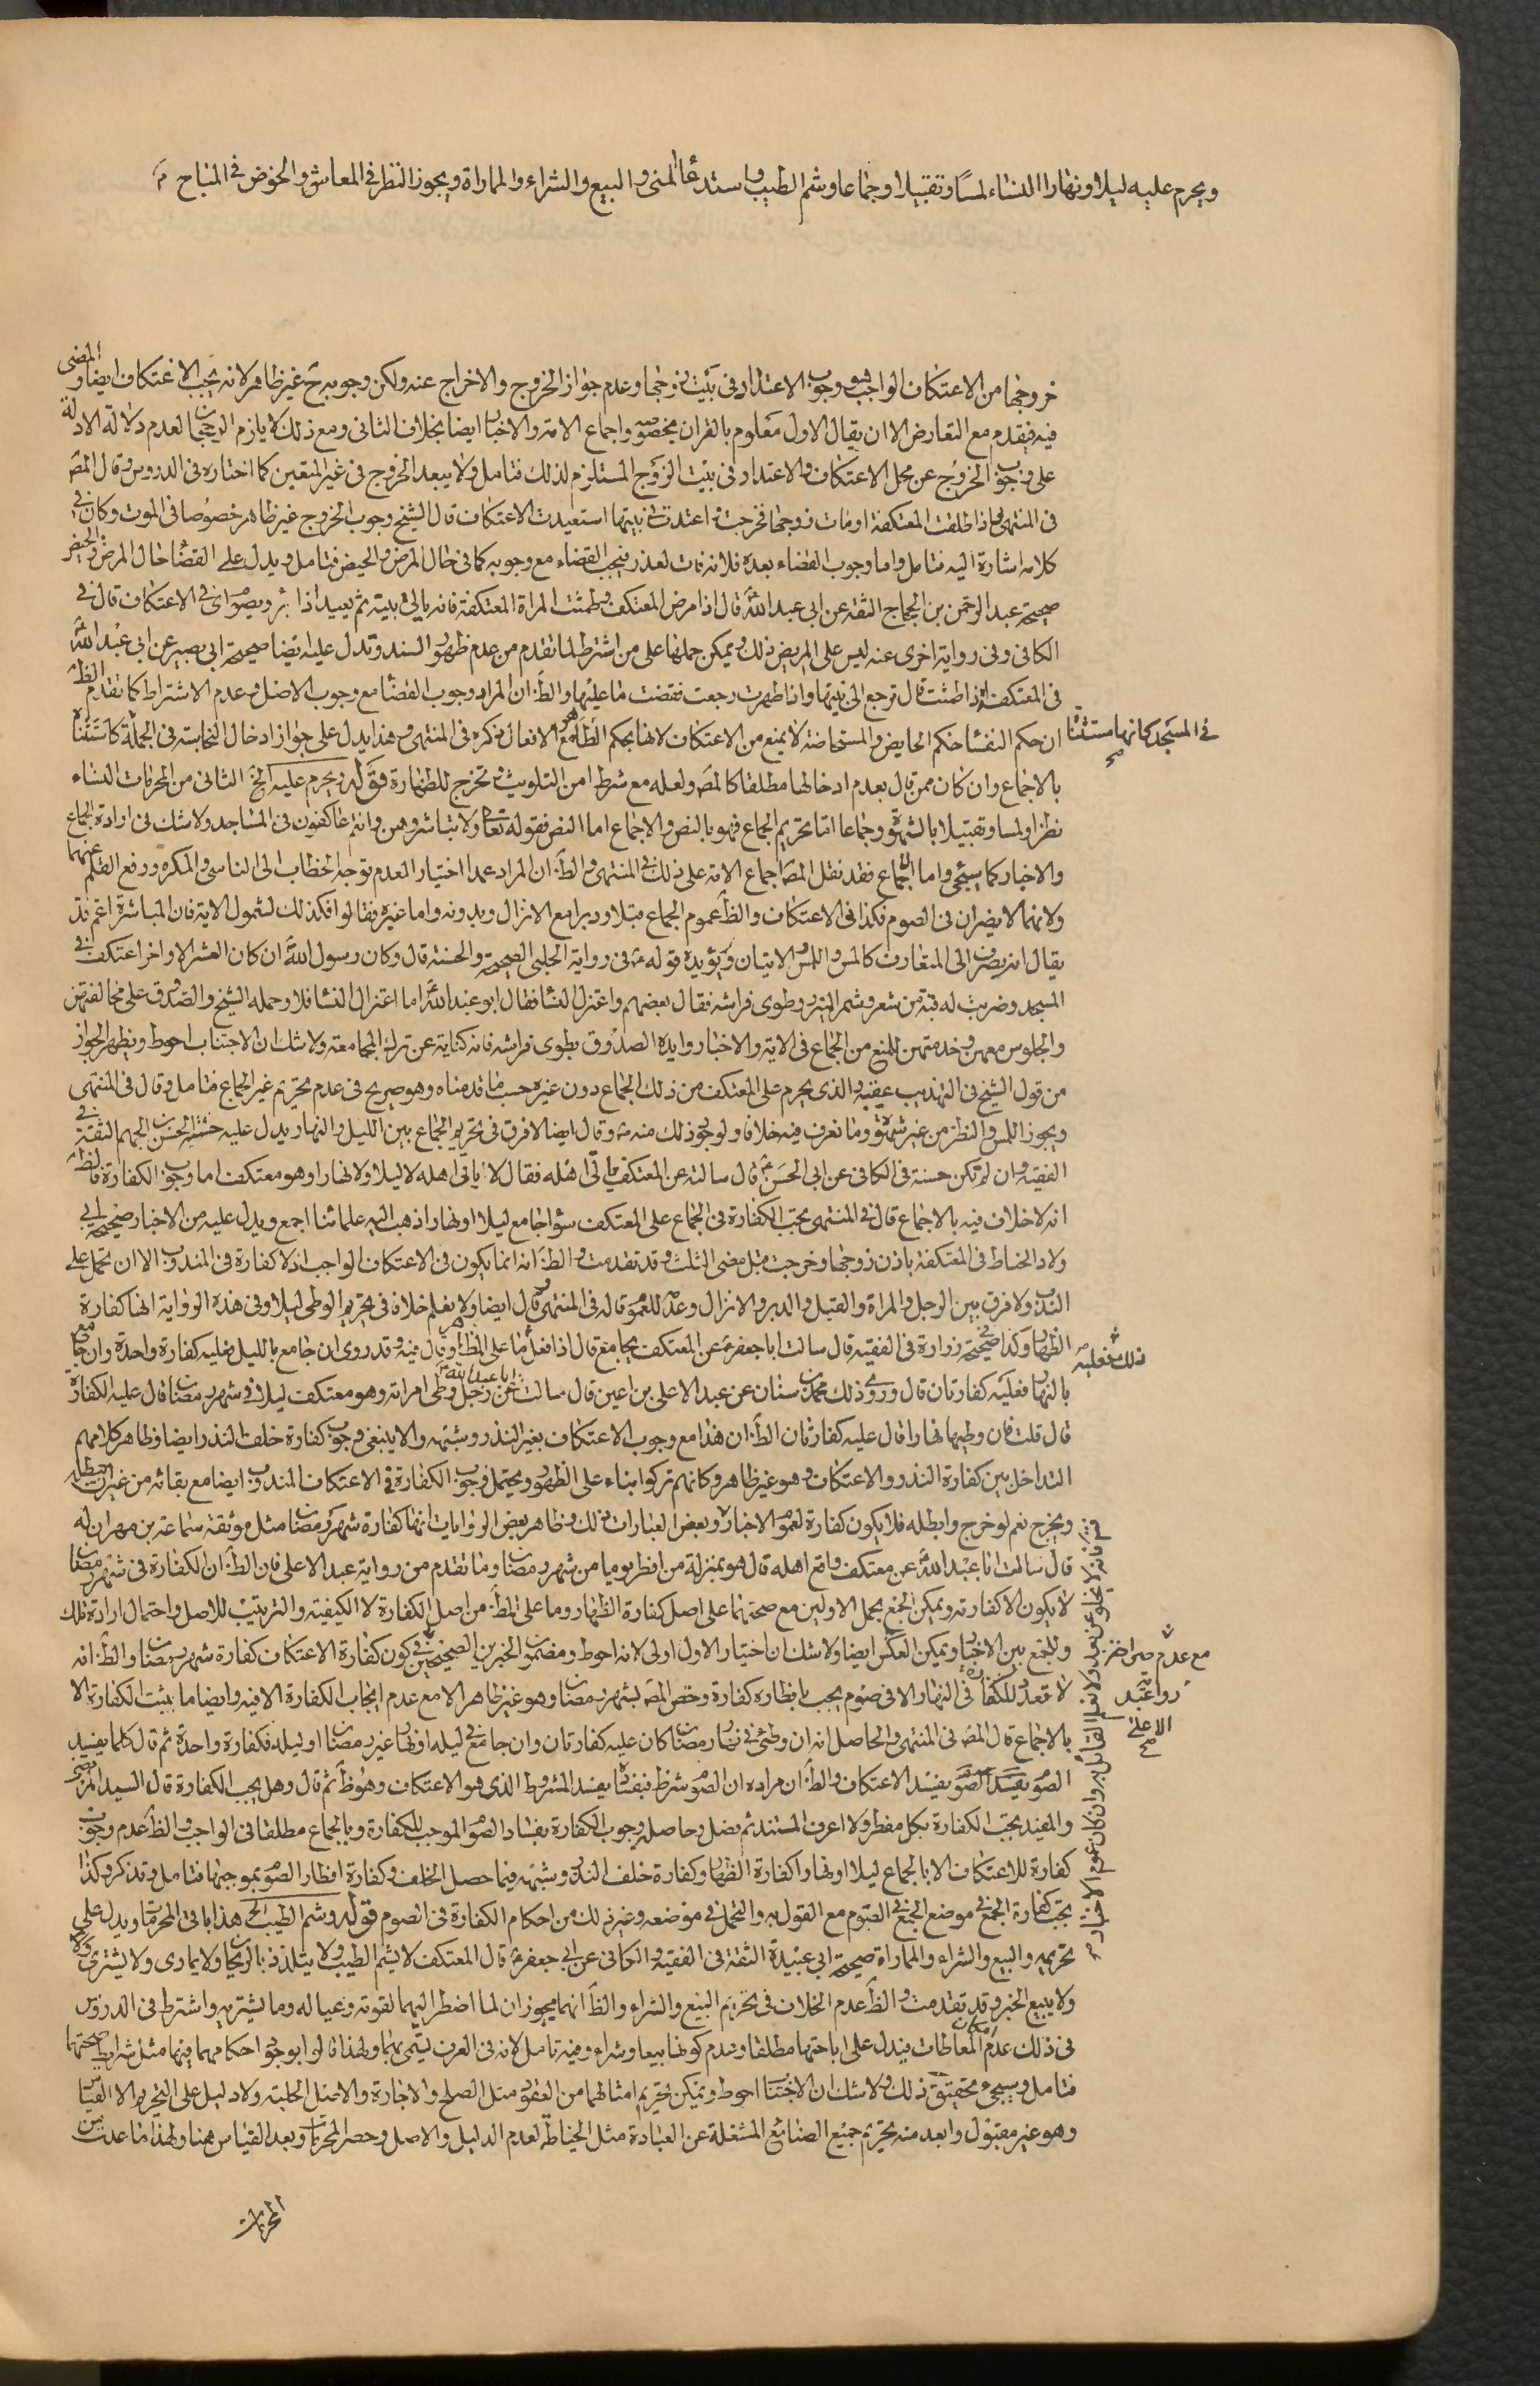 ويحرم عليه ليلا ونهارا النساء لمسا وتقبيلا وجماعا وشم الطيب واستدعا المنى والبيع والشراء والمماراة ويجوز النظر في المعاش والخوض في المباح
خروجها من الاعتكاف الواجب ووجوب الاعتداد في بيت زوجها وعدم جواز الخروج والاخراج عنه ولكن وجوبه ح غير ظاهر لانه يجب الاعتكاف ايضا والمضى
فيه فيقدم مع التعارض الا ان يقال الاول معلوم بالقران بخصوصه واجماع الامة والاخبار ايضا بخلاف الثانى ومع ذلك لا يلزم الرجحان لعدم دلالة الادلة
على وجوب الخروج عن محل الاعتكاف والاعتداد في بيت الزوج المستلزم لذلك فتامل ولا يبعد الخروج في غير المتعين كما اختاره في الدروس وقال المصَ
في المنتهى واذا طلقت المعتكفة او مات زوجها فخرجت واعتدت في بيتها استعيدت الاعتكاف قال الشيخ وجوب الخروج غير ظاهر خصوصا في الموت وكان في
كلامه اشارة اليه فتامل واما وجوب القضاء بعده فلانه فات لعذر فيجب القضاء مع وجوبه كما في حال المرض والحيض فتامل ويدل على القضا حال المرض والحيض
صحيحة عبد الرحمن بن الحجاج الثقة عن ابى عبد الله قال اذا مرض المعتكف وطمثت المراة المعتكفة فانه ياتى بيته ثم يعيد اذا برء ويصوم اى في الاعتكاف قال في
الكافى وفى رواية اخرى عنه ليس على المريض ذلك ويمكن حملها على من اشترط لما تقدم من عدم ظهور السند وتدل عليه ايضا صحيحة ابى بصير عن ابى عبد الله
في المعتكفة اذا طمثت قال ترجع الى بيتها واذا طهرت رجعت فقضت ما عليها والظَ ان المراد وجوب القضا مع وجوب الاصل وعدم الاشتراط كما تقدم الظَ
ان حكم النفسا حكم الحايض والمستحاضة لا يمنع من الاعتكاف لانها بحكم الطاهر مع الافعال ذكره في المنتهى وهذا يدل على جواز ادخال النجاسة في الجملة كاستثنا
في المسجد كانها مستثنا صح
بالاجماع وان كان ممن قال بعدم ادخالها مطلقا كالمصَ ولعله مع شرط امن التلويث وتخرج للطهارة قوله ويحرم عليه الخ الثانى من المحرمات النساء
نظرا ولمسا وتقبيلا بالشهوة وجماعا اما تحريم الجماع فهو بالنص والاجماع اما النص فقوله تعا ولا تباشروهن وانتم عاكفون في المساجد ولا شك في ارادة الجماع
والاخبار كما سيجئ واما الاجماع فقد نقل المصَ اجماع الامة على ذلك في المنتهى والظَ ان المراد عمدا اختيارا لعدم توجه الخطاب الى الناسى والمكره ورفع القلم عنهما
ولانهما لا يضران في الصوم فكذا في الاعتكاف والظَ عموم الجماع قبلا ودبرا مع الانزال وبدونه واما غيره فقالوا فكذلك لشمول الاية فان المباشرة اعم وقد
يقال انه يصرف الى المتعارف كالمس واللمس والاتيان ويؤيده قوله في رواية الحلبى الصحيحة والحسنة قال وكان رسول الله ان كان العشر الاواخر اعتكف في
المسجد وضربت له قبة من شعر وشمر الميزر وطوى فراشه فقال بعضهم واعتزل النسا فقال ابو عبد الله اما اعتزال النسا فلا وحمله الشيخ والصدوق على مخالفتهن
والجلوس معهن وخدمتهن للمنع من الجماع في الاية والاخبار وايده الصدوق بطوى فراشه فانه كناية عن ترك المجامعة ولا شك ان الاجتناب احوط ويظهر الجواز
من قول الشيخ في التهذيب عقيبه والذى يحرم على المعتكف من ذلك الجماع دون غيره حسب ما قدمناه وهو صريح في عدم تحريم غير الجماع فتامل وقال في المنتهى
ويجوز اللمس والنظر من غير شهوة وما نعرف فيه خلافا ولو لوجود ذلك منه وقال ايضا لا فرق في تحريم الجماع بين الليل والنهار ويدل عليه حسنة الحسن بن الجهم الثقة في
الفقيه وان لم تكن حسنة في الكافى عن ابى الحسن قال سالته عن المعتكف ياتى اهله فقال لا ياتى اهله لا ليلا ولا نهارا وهو معتكف اما وجوب الكفارة فالظَ
انه لا خلاف فيه بالاجماع قال في المنتهى يجب الكفارة في الجماع على المعتكف سواء جامع ليلا او نهارا ذهب اليه علمائنا اجمع ويدل عليه من الاخبار صحيحة ابى
ولاد الحناط في المعتكفة باذن زوجها وخرجت قبل مضى الثلث وقد تقدمت والظَ انه انما يكون في الاعتكاف الواجب اذ لا كفارة في المندوب الا ان تحمل على
الندب ولا فرق بين الرجل والمراة والقبل والدبر والانزال وعدمه للعموم قاله في المنتهى وقال ايضا ولا يعلم خلاف في تحريم الوطى ليلا وفى هذه الرواية انها كفارة
الظهار وكذا صحيحة زرارة في الفقيه قال سالت ابا جعفر عن المعتكف يجامع قال اذا فعل فعليه ما على المظاهر وقال فيه وقد روى ان جامع بالليل فعليه كفارة واحدة وان جامع
ذلك فعليه
بالنهار فعليه كفارتان قال وروى ذلك محمد بن سنان عن عبد الاعلى بن اعين قال سالت ابا عبد الله عن رجل وطى امراته وهو معتكف ليلا في شهر رمضان قال عليه الكفارة
قال قلت فان وطيها نهارا قال عليه كفارتان الظَ ان هذا مع وجوب الاعتكاف بغير النذر وشبهه والا ينبغى وجوب كفارة خلف النذر ايضا وظاهر كلامهم
التداخل بين كفارة النذر والاعتكاف وهو غير ظاهر وكانهم تركوا بناء على الظهور ويحتمل وجوب الكفارة في الاعتكاف المندوب ايضا مع بقائه من غير ان يبطله
ويخرج نعم لو خرج وابطله فلا يكون كفارة لعموم الاخبار وبعض العبارات ذلك وظاهر بعض الروايات انها كفارة شهر رمضان مثل موثقة سماعة بن مهران له
قال سالت ابا عبد الله عن معتكف واقع اهله قال هو بمنزلة من افطر يوما من شهر رمضان وما تقدم من رواية عبد الاعلى فان الظَ ان الكفارة في شهر رمضان
لا يكون الا كفارته ويمكن الجمع بحمل الاولين مع صحتهما على اصل كفارة الظهار وما على المظَ من اصل الكفارة لا الكيفية والترتيب للاصل واحتمال ارادة ذلك
وللجمع بين الاخبار ويمكن العكس ايضا ولا شك ان اختيار الاول اولى لانه احوط ومضمون الخبرين الصحيحين في كون كفارة الاعتكاف كفارة شهر رمضان والظَ انه
مع عدم
رواية عبد
الاعلى صح
لا تعدد للكفارة في النهار الا في صوم يجب بافطاره كفارة وخص المصَ بشهر رمضان وهو غير ظاهر الا مع عدم ايجاب الكفارة الا فيه وايضا ما يثبت الكفارة الا
بالاجماع قال المصَ في المنتهى والحاصل انه ان وطئ في نهار رمضان كان عليه كفارتان وان جامع في ليله او نهار غير رمضان او ليله فكفارة واحدة ثم قال كلما يفسد
الصوم يفسد الاعتكاف والظَ ان مراده ان الصوم شرط فبفساده يفسد المشروط الذى هو الاعتكاف وهو ظَ ثم قال وهل يجب الكفارة قال السيد المرتضى
والمفيد يجب الكفارة بكل مفطر ولا اعرف المستند ثم فصل وحاصله وجوب الكفارة بفساد الصوم الموجب للكفارة وبالجماع مطلقا في الواجب والظَ عدم وجوب
كفارة للاعتكاف الا بالجماع ليلا او نهارا كفارة الظهار وكفارة خلف النذر وشبهه فيما حصل الخلف وكفارة افطار الصوم بموجبها فتامل وقد ذكر وكذا
يجب كفارة الجمع في موضع الجمع في الصوم مع القول به والتحمل في موضعه وغير ذلك من احكام الكفارة في الصوم قوله وشم الطيب الخ هذا باقى المحرمات ويدل على
تحريمه والبيع والشراء والمماراة صحيحة ابى عبيدة الثقة في الفقيه والكافى عن ابى جعفر قال المعتكف لا يشم الطيب ولا يتلذذ بالريحان ولا يمارى ولا يشترى ولا
ولا يبيع الخبر وقد تقدمت والظَ عدم الخلاف في تحريم البيع والشراء والظَ انهما يجوزان لما اضطر اليهما لقوته وعياله وما يشتريه واشترط في الدروس
في ذلك عدم امكان المعاطات فيدل على اباحتها مطلقا وعدم كونها بيعا وشراء وفيه تامل لانه في العرف يسمى بهما ولهذا قالوا بوجود احكامهما فيها مثل شرايط صحتها
فتامل وسيجئ تحقيق ذلك ولا شك ان الاجتناب احوط ويمكن تحريم امثالهما من العقود مثل الصلح والاجارة والاصل الحلية ولا دليل على التحريم الا القياس
وهو غير مقبول وابعد منه تحريم جميع الصنايع المشغلة عن العبادة مثل الخياطة لعدم الدليل والاصل وحصر المحرمات وبعد القياس هنا ولهذا ما عدت من
المحرمات